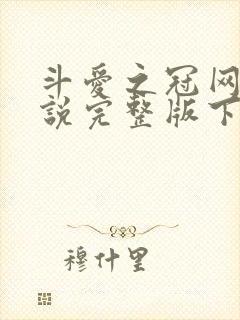 斗愛之冠网
説完整版下
穆什里